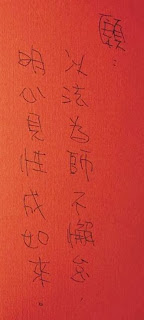 願：
以法為師不懈怠，
明心見性成如來。